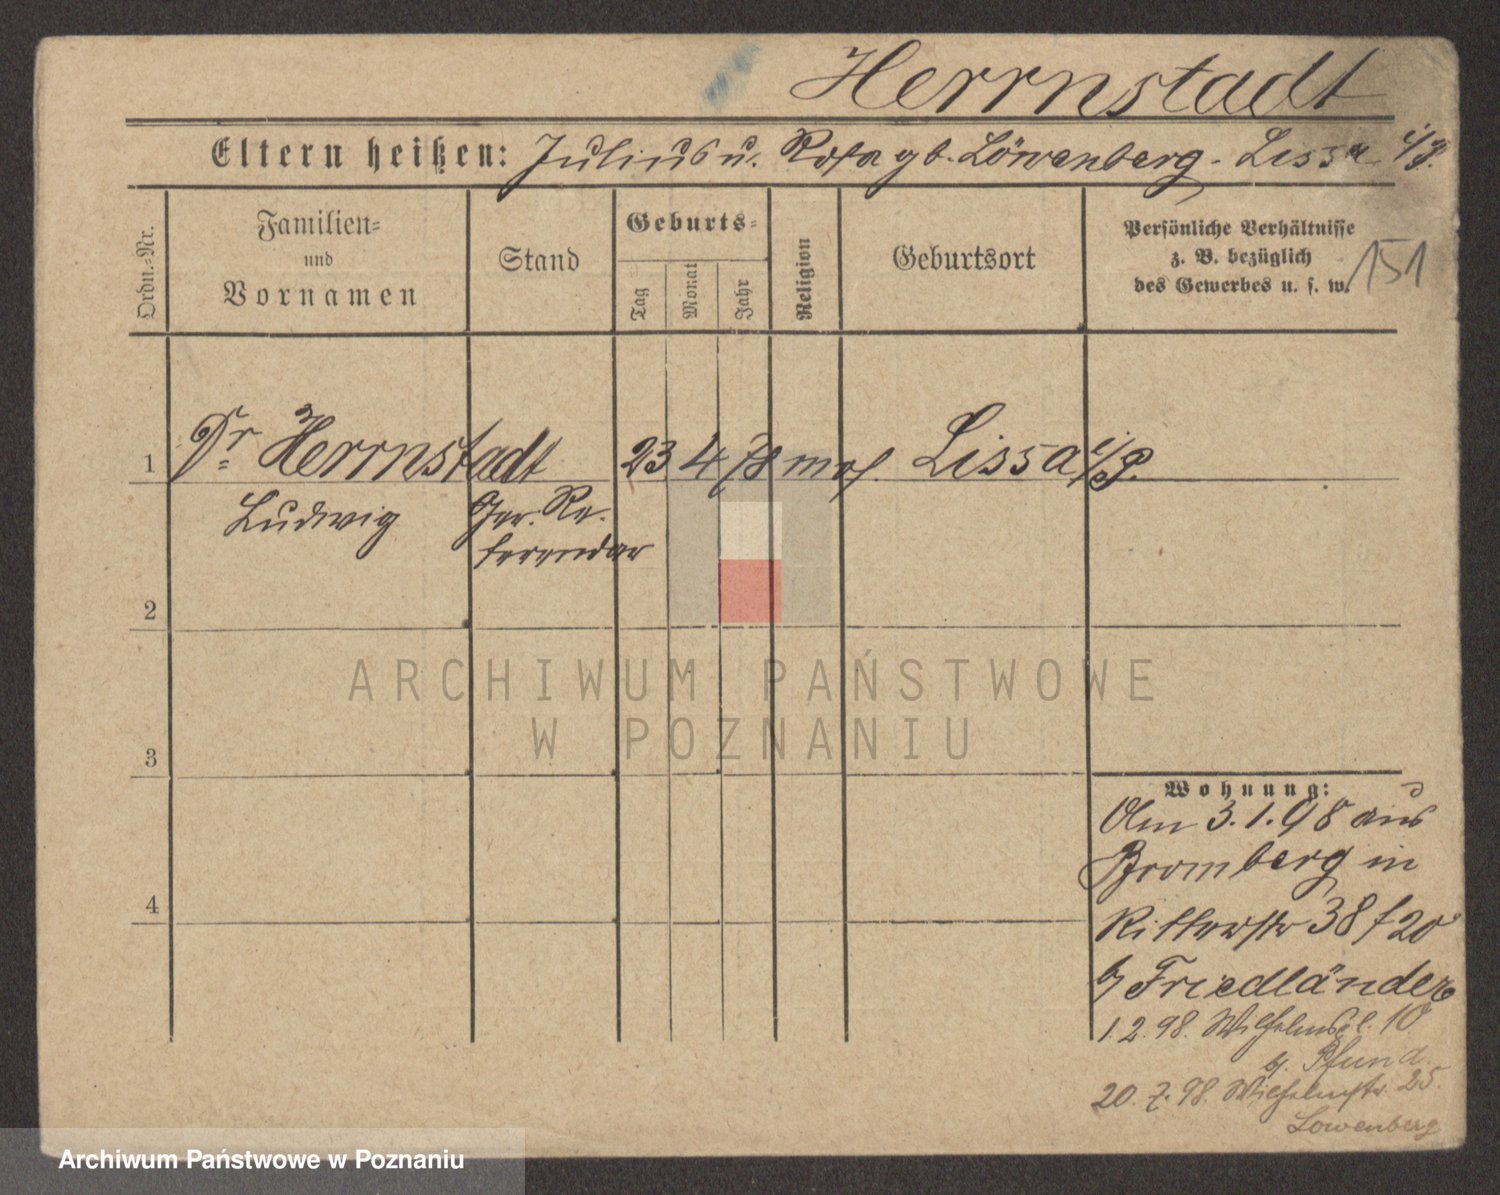 Herrnstadt
Eltern heißen: Julius u. Rosa gb. Löwenberg - Lissa i/P.
Ordn.-Nr.
Familien-
und
Vornamen
Stand
Geburts-
Tag
Monat
Jahr
Religion
Geburtsort
Persönliche Verhältnisse
z. B. bezüglich
des Gewerbes u. s. w.
151
1 Dr Herrnstadt 23 4 78 mos. Lissa i/P.
Ludwig Ger. Re-
ferendar
2
3
4
Wohnung:
Am 3.1.98 aus
Bromberg in
Ritterstr 38 f 20
b/ Friedländer
1.2.98. Wilhelmspl. 10
b/. Pfund.
20. 7. 98. Wilhelmstr. 25.
Löwenberg
ARCHIWUM PAŃSTWOWE
W POZNANIU
Archiwum Państwowe w Poznaniu